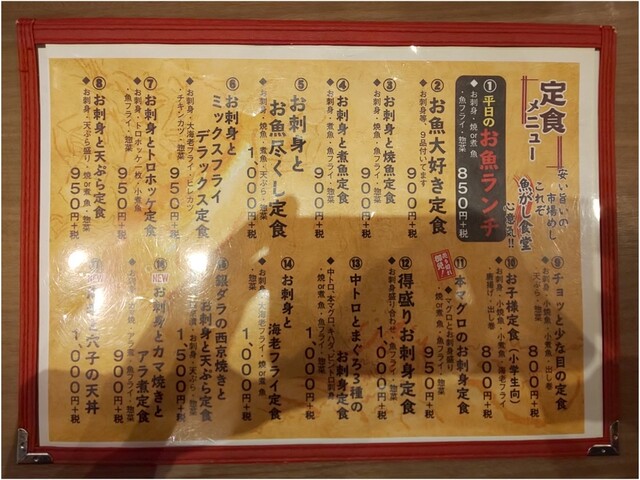 定食
メニュー
安い旨いの
市場めし
これぞ
魚がし食堂
心意気!!
① 平日のお魚ランチ
お刺身・焼or煮魚
・魚フライ・惣菜
850円+税
② お魚大好き定食
お刺身等、9品付いてます
900円+税
③ お刺身と焼魚定食
お刺身・焼魚・魚フライ・惣菜
900円+税
④ お刺身と煮魚定食
お刺身・煮魚・魚フライ・惣菜
900円+税
⑤ お刺身と
お魚尽くし定食
お刺身・焼魚・煮魚・天ぷら・惣菜
1,000円+税
⑥ お刺身と
ミックスフライ
デラックス定食
お刺身・大海老フライ・ヒレカツ
・チキンカツ・惣菜
950円+税
⑦ お刺身とトロホッケ定食
お刺身・トロホッケ一枚・小煮魚
・魚フライ・惣菜
950円+税
⑧ お刺身と天ぷら定食
お刺身・天ぷら盛り・焼or煮魚・惣菜
950円+税
⑨ チョッと少な目の定食
お刺身・小焼魚・小煮魚・出し巻
天ぷら・惣菜
800円+税
⑩ お子様定食(小学生向)
お刺身・小焼魚・小煮魚・海老フライ
唐揚げ・出し巻
800円+税
売り切れ
御免!
⑪ 本マグロのお刺身定食
本マグロとお刺身盛り
・焼or煮魚・魚フライ・惣菜
950円+税
⑫ 得盛りお刺身定食
お刺身盛り合わせ・魚フライ
・焼or煮魚・惣菜
1,000円+税
⑬ 中トロとまぐろ3種の
お刺身定食
中トロ、本マグロ、キハダ、ビントロ刺身
・焼or煮魚・魚フライ・惣菜
1,000円+税
⑭ お刺身と
海老フライ定食
お刺身・大海老フライ・焼or煮魚
・惣菜
1,000円+税
銀ダラの西京焼きと
お刺身と天ぷら定食
お刺身・天ぷら・惣菜
1,500円+税
NEW
お刺身とカマ焼きと
アラ煮定食
魚フライ・惣菜
900円+税
NEW
と穴子の天丼
1,000円+税